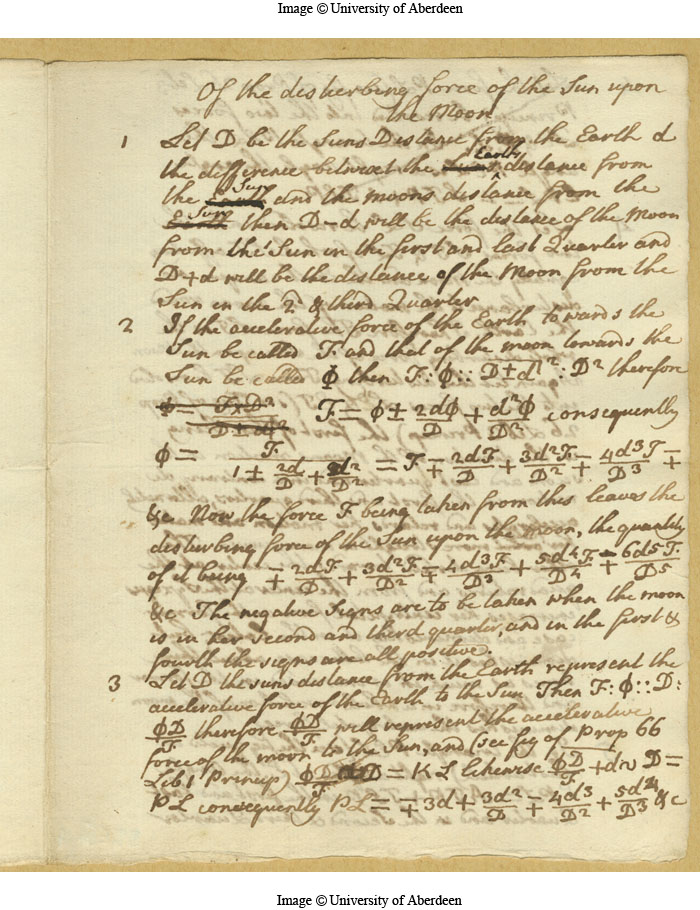 Image © University of Aberdeen
Of the disturbing force of the Sun upon
the Moon
1 Let D be the Suns Distance from the Earth d
the difference betwixt the Earths distance from
the Sun and the moons distance from the
Sun then D–d will be the distance of the Moon
from the Sun in the first and last Quarter and
D+d will be the distance of the Moon from the
Sun in the 2d & third Quarter
2 If the accelerative force of the Earth towards the
Sun be called F and that of the moon towards the
Sun be called Φ then F : Φ :: D±d² : D² therefore
Φ = F×D²/D±d² F = Φ ± 2dΦ/D + d²Φ/D² consequently
Φ = F/1 ± 2d/D + d²/D² = F ∓ 2dF/D + 3d²F/D² ∓ 4d³F/D³ ∓
&c Now the force F being taken from this leaves the
disturbing force of the Sun upon the Moon, the quantity
of it being ∓ 2dF/D + 3d²F/D² ∓ 4d³F/D³ + 5d⁴F/D⁴ ∓ 6d⁵F/D⁵
&c The negative Signs are to be taken when the moon
is in her second and third quarter, and in the first &
fourth the signs are all positive.
3 Let D the suns distance from the Earth represent the
accelerative force of the Earth to the Sun Then F : Φ :: D :
ΦD/F therefore ΦD/F will represent the accelerative
force of the moon to the Sun, and (see fig of Prop 66
Lib 1 Princip) ΦD/F – D = KL likewise ΦD/F + d ~ D =
PL consequently PL = ∓ 3d + 3d²/D ∓ 4d³/D² + 5d⁴/D³ &c
Image © University of Aberdeen